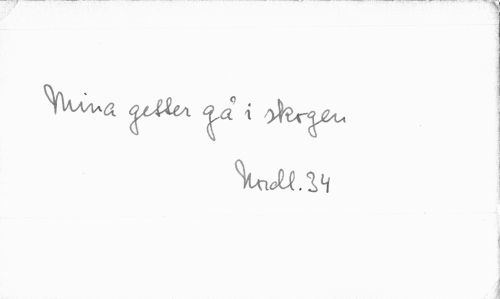 Mina getter gå i skogen
Nordl. 34